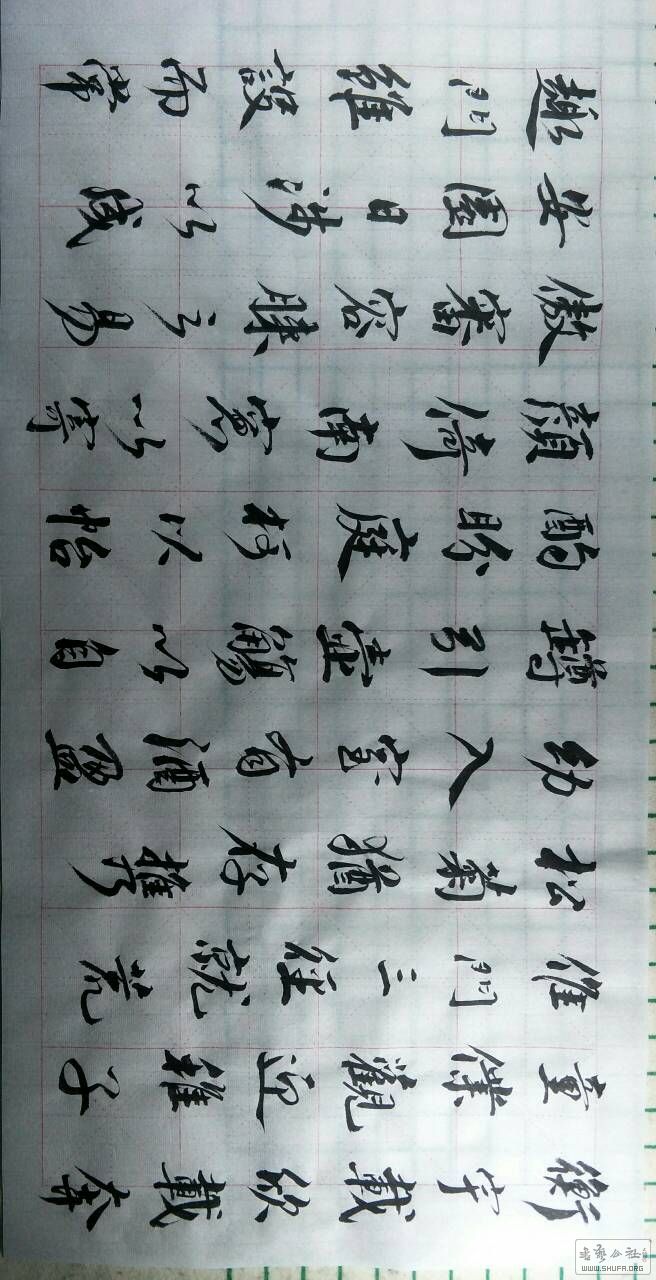 衡宇載欣載奔
童僕歡迎稚子
候門三徑就荒
松菊猶存携
幼入室有酒盈
罇引壺觴以自
酌眄庭柯以怡
顏倚南窗以寄
傲審容膝之易
安園日涉以成
趣門雖設而常
書藝公社
WWW.SHUFA.ORG